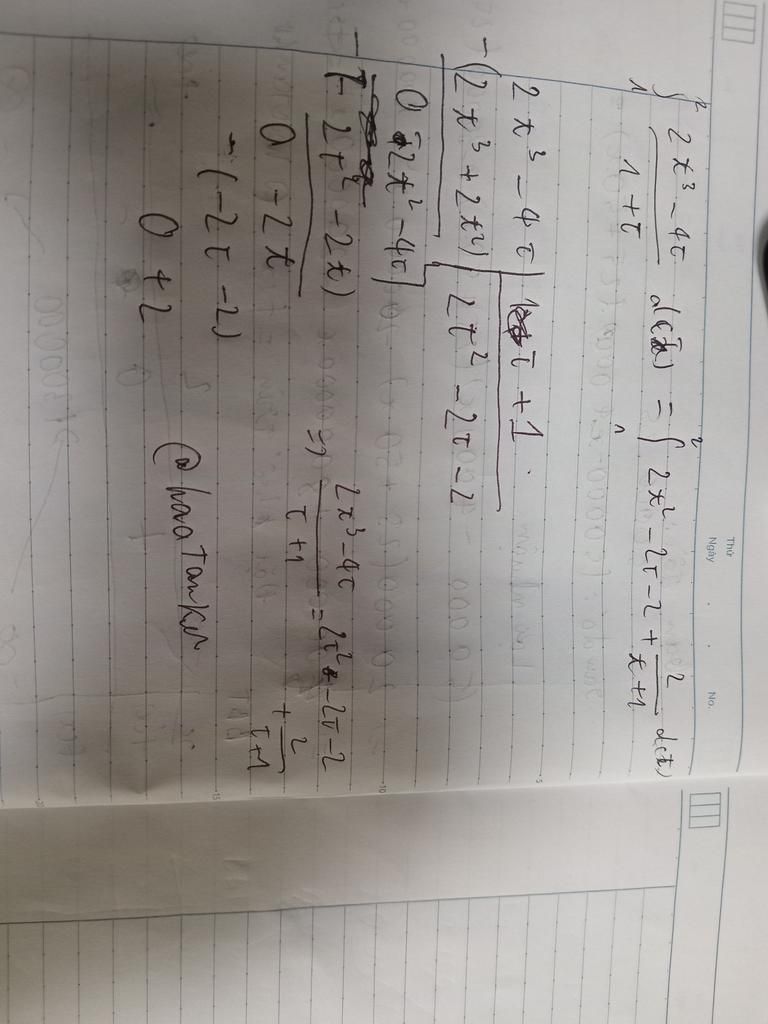 Thứ
Ngày . . No.
∫₁² (2t³ - 4t)/(1 + t) d(t) = ∫₁² 2t² - 2t - 2 + 2/(t+1) d(t)
2t³ - 4t | t + 1
-(2t³ + 2t²) | 2t² - 2t - 2
0 - 2t² - 4t
-(- 2t² - 2t)
0 - 2t
-(-2t - 2)
0 + 2
=> (2t³ - 4t)/(t + 1) = 2t² - 2t - 2
+ 2/(t+1)
5
10
15
20